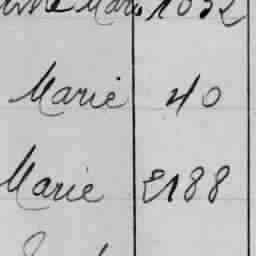 Marie 1032
Marie 40
Marie 2188